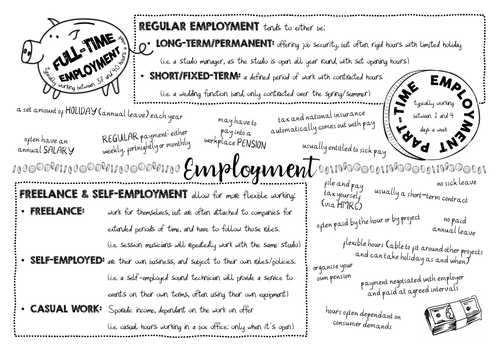 REGULAR EMPLOYMENT tends to either be:
• LONG-TERM/PERMANENT: offering job security, but often rigid hours with limited holiday
(i.e. a studio manager, as the studio is open all year round, with set opening hours)
• SHORT/FIXED-TERM: a defined period of work with contracted hours
(i.e. a wedding function band, only contracted over the spring/summer)
FULL-TIME
EMPLOYMENT
typically working between 37 and 40 hours a
PART-TIME EMPLOYMENT
typically working
between 2 and 4
days a week
a set amount of HOLIDAY (annual leave) each year
often have an
annual SALARY
REGULAR payment: either
weekly, fortnightly or monthly
may have to
pay into a
workplace PENSION
tax and national insurance
automatically comes out with pay
usually entitled to sick pay
Employment
FREELANCE & SELF-EMPLOYMENT allow for more flexible working:
• FREELANCE: work for themselves, but are often attached to companies for
extended periods of time, and have to follow those rules.
(i.e. session musicians will repeatedly work with the same studio)
• SELF-EMPLOYED: are their own business, and subject to their own rules/policies.
(i.e. a self-employed sound technician will provide a service to
events on their own terms, often using their own equipment)
• CASUAL WORK: Sporadic income, dependant on the work on offer
(i.e. casual hours working in a box office: only when it's open)
file and pay
tax yourself
(via HMRC)
usually a short-term contract
no sick leave
often paid by the hour or by project
no paid
annual leave
flexible hours (able to fit around other projects
and can take holiday as and when)
organise your
own pension
payment negotiated with employer
and paid at agreed intervals
hours often dependant on
consumer demands